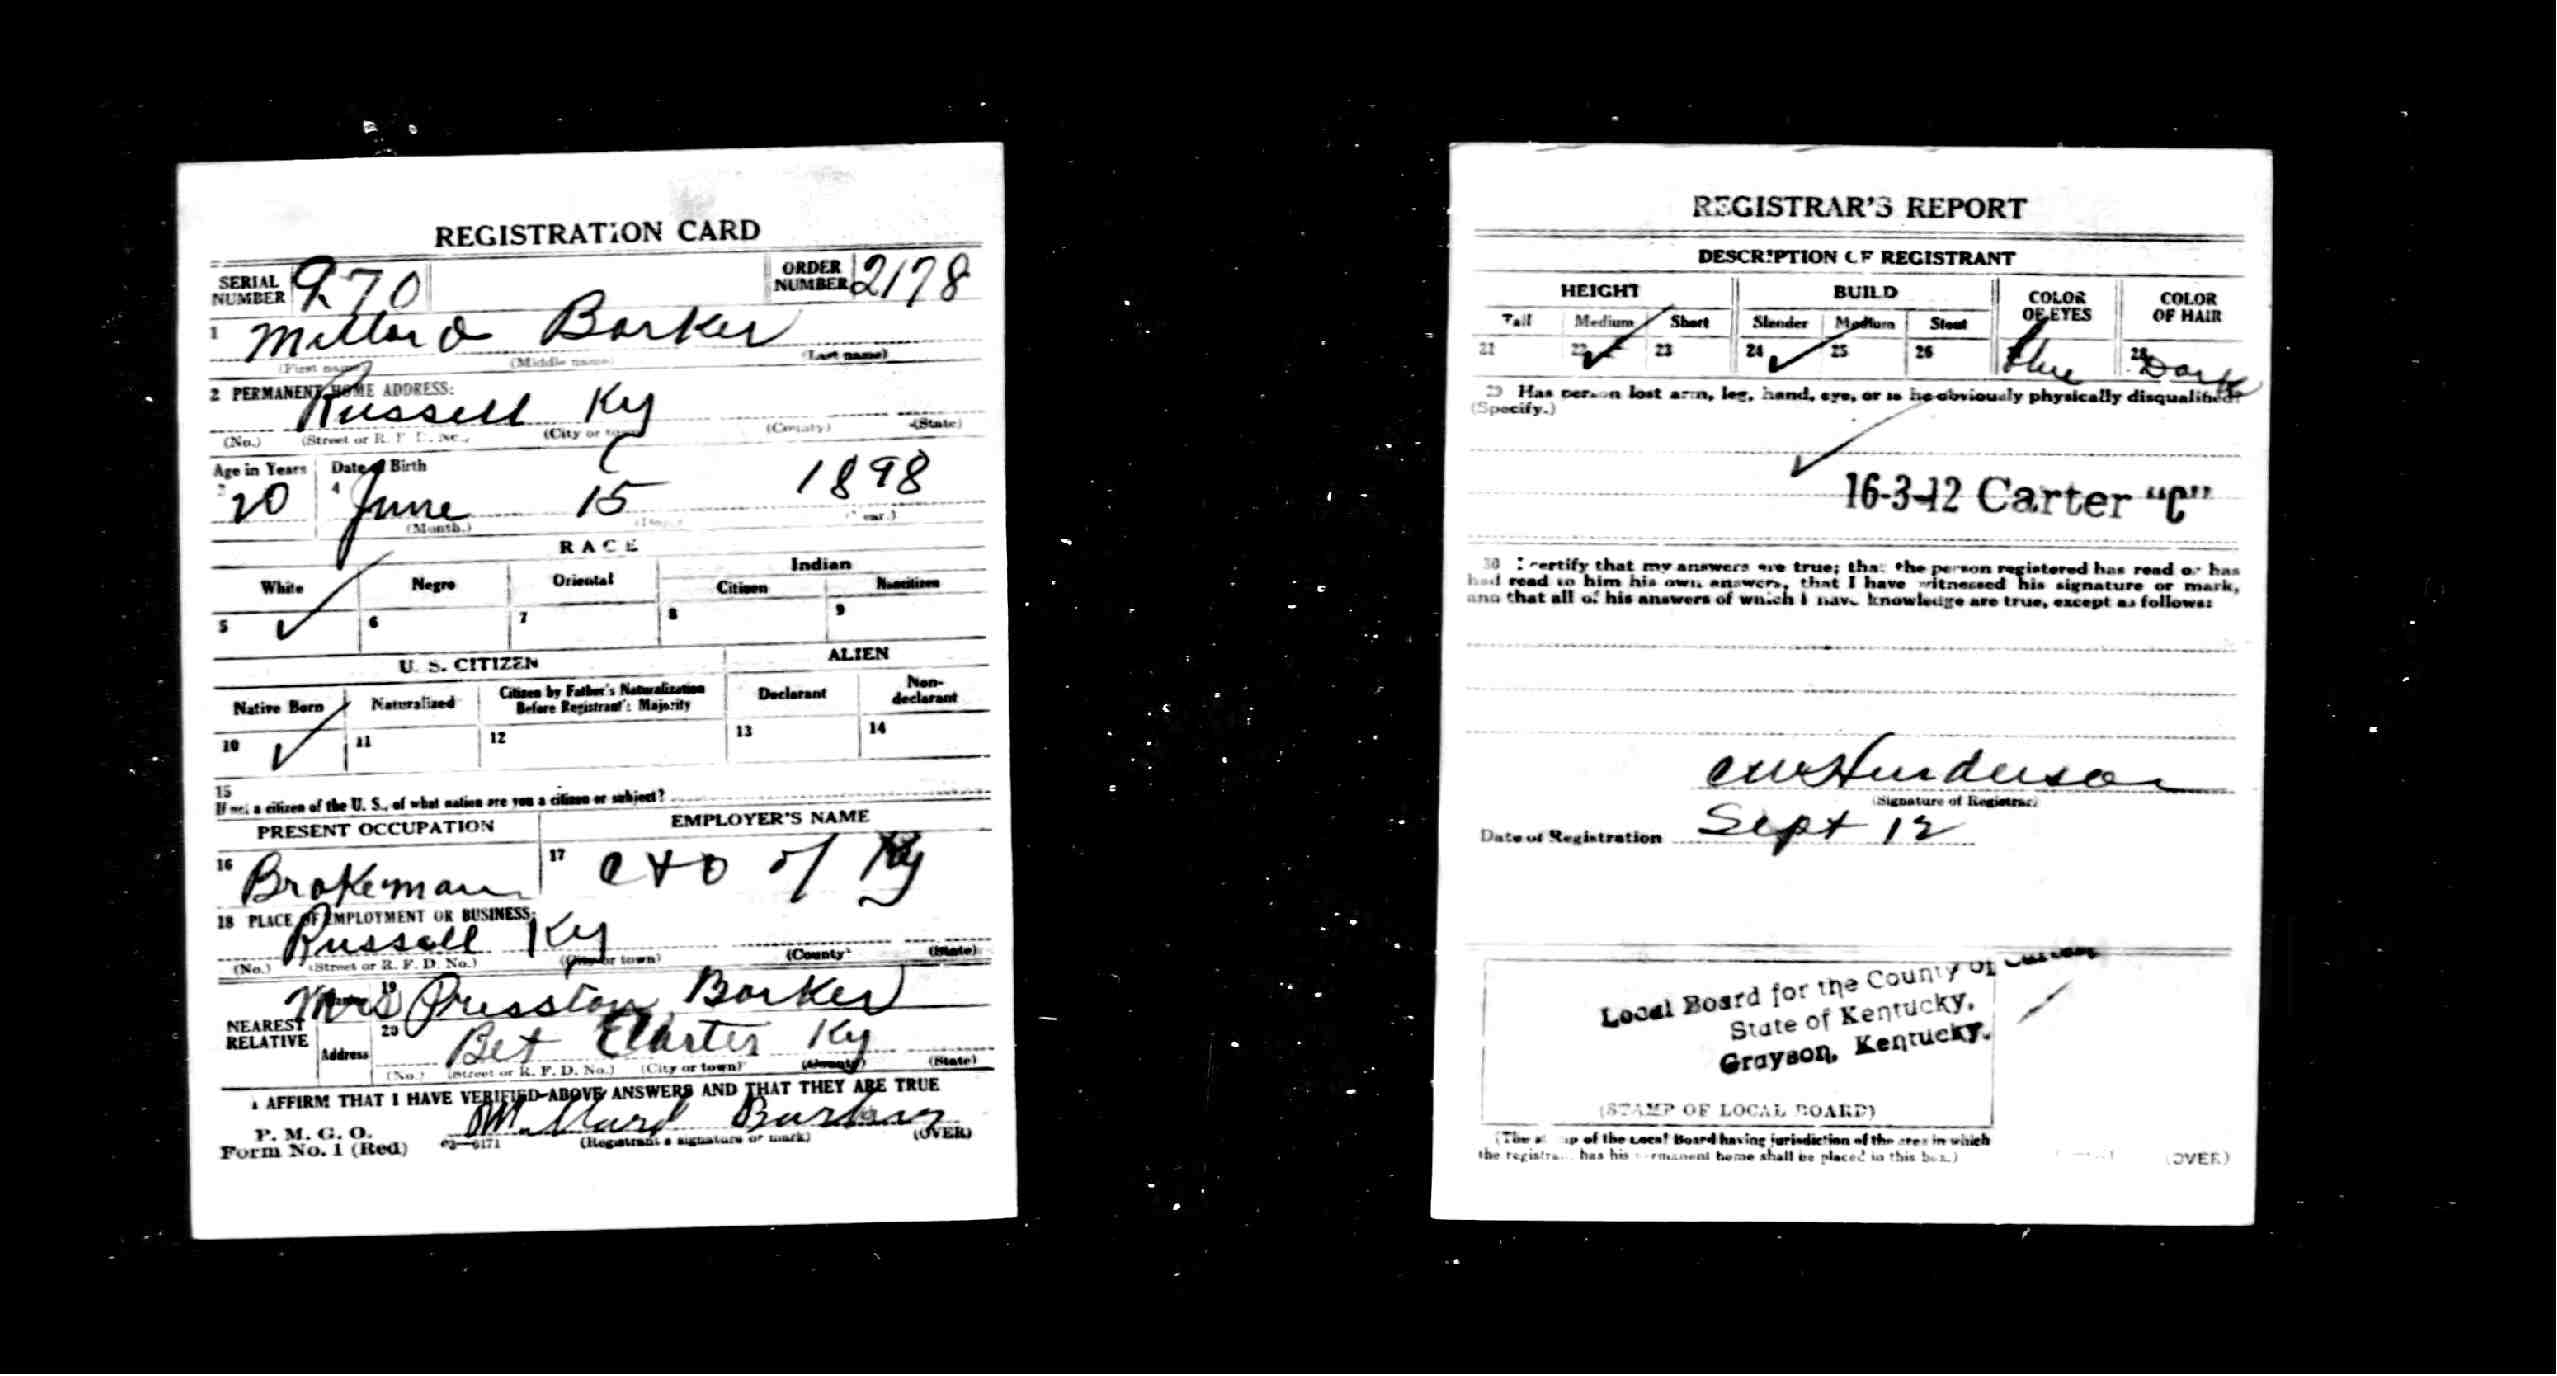 REGISTRATION CARD
SERIAL NUMBER 970 ORDER NUMBER 2178
1 Millard Barker
(First name) (Middle name) (Last name)
2 PERMANENT HOME ADDRESS:
Russell Ky
(No.) (Street or R. F. D. No.) (City or town) (County) (State)
Age in Years Date of Birth
3 20 4 June 15 1898
(Month.) (Day.) (Year.)
RACE
White Negro Oriental Indian
Citizen Noncitizen
5 ✓ 6 7 8 9
U. S. CITIZEN ALIEN
Native Born Naturalized Citizen by Father's Naturalization Before Registrant's Majority Declarant Non-declarant
10 ✓ 11 12 13 14
15
If not a citizen of the U. S., of what nation are you a citizen or subject?
PRESENT OCCUPATION EMPLOYER'S NAME
16 Brakeman 17 C + O of Ky
18 PLACE OF EMPLOYMENT OR BUSINESS:
Russell Ky
(No.) (Street or R. F. D. No.) (City or town) (County) (State)
NEAREST RELATIVE Name 19 Mrs Presston Barker
Address 20 Bet Carter Ky
(No.) (Street or R. F. D. No.) (City or town) (County) (State)
I AFFIRM THAT I HAVE VERIFIED ABOVE ANSWERS AND THAT THEY ARE TRUE
P. M. G. O.
Form No. 1 (Red) 03—6171 Millard Barker
(Registrant's signature or mark) (OVER)
REGISTRAR'S REPORT
DESCRIPTION OF REGISTRANT
HEIGHT BUILD COLOR OF EYES COLOR OF HAIR
Tall Medium Short Slender Medium Stout
21 22 ✓ 23 24 ✓ 25 26 Blue 28 Dark
29 Has person lost arm, leg, hand, eye, or is he obviously physically disqualified?
(Specify.)
16-3-12 Carter "C"
30 I certify that my answers are true; that the person registered has read or has
had read to him his own answers, that I have witnessed his signature or mark,
and that all of his answers of which I have knowledge are true, except as follows:
C W Henderson
(Signature of Registrar)
Date of Registration Sept 12
Local Board for the County of Carter,
State of Kentucky,
Grayson, Kentucky.
(STAMP OF LOCAL BOARD)
(The stamp of the Local Board having jurisdiction of the area in which
the registrant has his permanent home shall be placed in this box.)
(OVER)